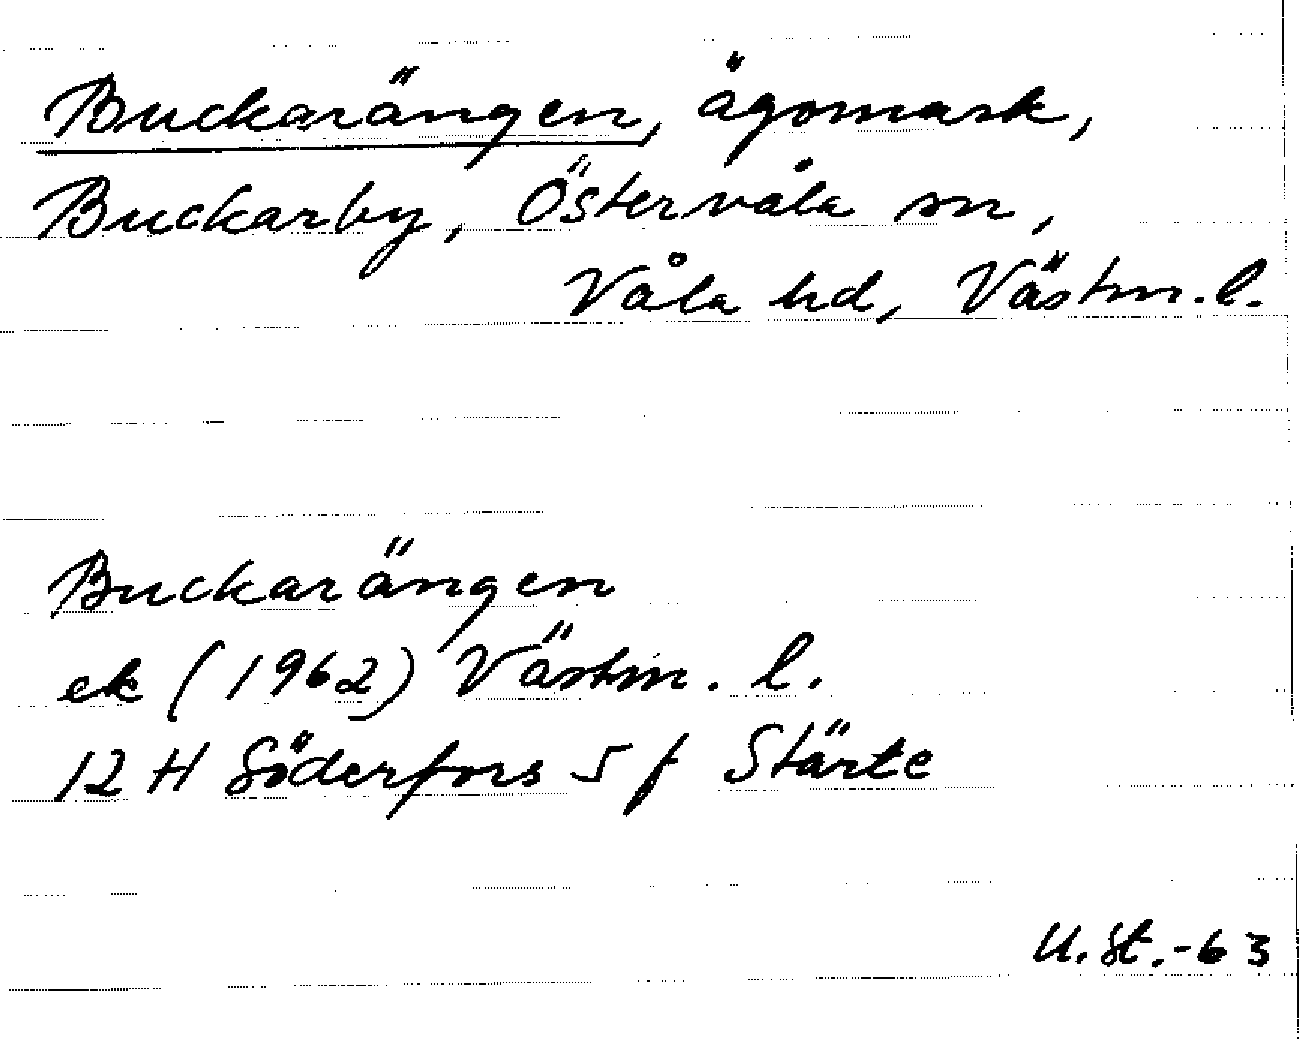 Buckarängen, ägomark,
Buckarby, Östervåla sn,
Våla hd, Västm. l.
Buckarängen
ek (1962) Västm. l.
12 H Söderfors 5 f Stärte
U. St. -63